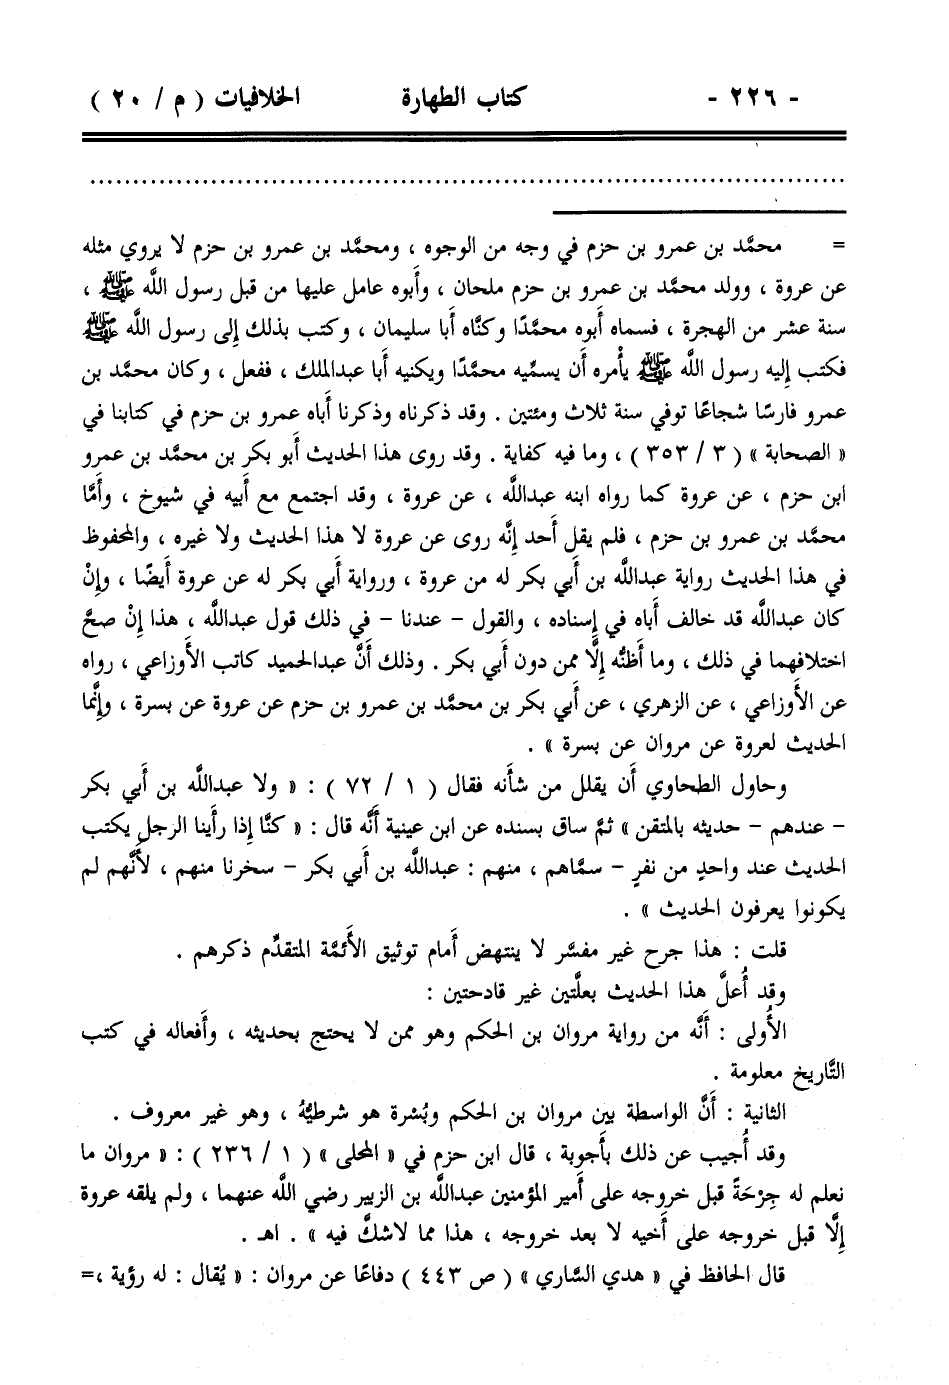 - ٢٢٦ - كتاب الطهارة الخلافيات ( م / ٢٠ )
........................................................................
= محمَّد بن عمرو بن حزم في وجه من الوجوه ، ومحمَّد بن عمرو بن حزم لا يروي مثله
عن عروة ، وولد محمَّد بن عمرو بن حزم ملحان ، وأَبوه عامل عليها من قبل رسول اللَّه ﷺ ،
سنة عشر من الهجرة ، فسماه أبوه محمَّدًا وكنَّاه أَبا سليمان ، وكتب بذلك إِلى رسول اللَّه ﷺ
فكتب إِليه رسول اللَّه ﷺ يأْمره أَن يسمِّيه محمَّدًا ويكنيه أَبا عبدالملك ، ففعل ، وكان محمَّد بن
عمرو فارسًا شجاعًا توفي سنة ثلاث ومئتين . وقد ذكرناه وذكرنا أَباه عمرو بن حزم في كتابنا في
« الصحابة » ( ٣ / ٣٥٣ ) ، وما فيه كفاية . وقد روى هذا الحديث أَبو بكر بن محمَّد بن عمرو
ابن حزم ، عن عروة كما رواه ابنه عبداللَّه ، عن عروة ، وقد اجتمع مع أَبيه في شيوخ ، وأَمَّا
محمَّد بن عمرو بن حزم ، فلم يقل أَحد إِنَّه روى عن عروة لا هذا الحديث ولا غيره ، والمحفوظ
في هذا الحديث رواية عبداللَّه بن أَبي بكر له من عروة ، ورواية أَبي بكر له عن عروة أَيضًا ، وإِنْ
كان عبداللَّه قد خالف أَباه في إِسناده ، والقول - عندنا - في ذلك قول عبداللَّه ، هذا إِنْ صحَّ
اختلافهما في ذلك ، وما أَظنُّه إِلَّا ممن دون أَبي بكر . وذلك أَنَّ عبدالحميد كاتب الأَوزاعي ، رواه
عن الأَوزاعي ، عن الزهري ، عن أَبي بكر بن محمَّد بن عمرو بن حزم عن عروة عن بسرة ، وإِنَّما
الحديث لعروة عن مروان عن بسرة » .
وحاول الطحاوي أَن يقلل من شأنه فقال ( ١ / ٧٢ ) : « ولا عبداللَّه بن أَبي بكر
- عندهم - حديثه بالمتقن » ثمَّ ساق بسنده عن ابن عيينة أَنَّه قال : « كنَّا إِذا رأَينا الرجل يكتب
الحديث عند واحدٍ من نفرٍ - سمَّاهم ، منهم : عبداللَّه بن أَبي بكر - سخرنا منهم ، لأَنَّهم لم
يكونوا يعرفون الحديث » .
قلت : هذا جرح غير مفسَّر لا ينتهض أَمام توثيق الأَئمَّة المتقدِّم ذكرهم .
وقد أُعلَّ هذا الحديث بعلَّتين غير قادحتين :
الأُولى : أَنَّه من رواية مروان بن الحكم وهو ممن لا يحتج بحديثه ، وأَفعاله في كتب
التَّاريخ معلومة .
الثانية : أَنَّ الواسطة بين مروان بن الحكم وبُشرة هو شرطيُّهُ ، وهو غير معروف .
وقد أُجيب عن ذلك بأَجوبة ، قال ابن حزم في « المحلى » ( ١ / ٢٣٦ ) : « مروان ما
نعلم له جِرْحَةً قبل خروجه على أَمير المؤمنين عبداللَّه بن الزبير رضي اللَّه عنهما ، ولم يلقه عروة
إِلَّا قبل خروجه على أَخيه لا بعد خروجه ، هذا مما لاشكَّ فيه » . اهـ .
قال الحافظ في « هدي السَّاري » ( ص ٤٤٣ ) دفاعًا عن مروان : « يُقال : له رؤية ،=